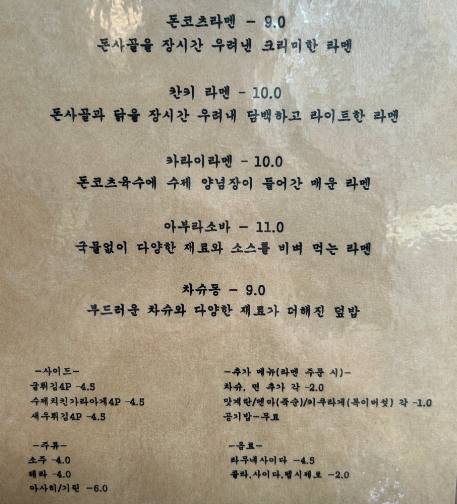 돈코츠라멘 - 9.0
돈사골을 장시간 우려낸 크리미한 라멘
찬키 라멘 - 10.0
돈사골과 닭을 장시간 우려내 담백하고 라이트한 라멘
카라이라멘 - 10.0
돈코츠육수에 수제 양념장이 들어간 매운 라멘
아부라소바 - 11.0
국물없이 다양한 재료와 소스를 비벼 먹는 라멘
차슈동 - 9.0
부드러운 차슈와 다양한 재료가 더해진 덮밥
-사이드-
굴튀김4P -4.5
수제치킨가라아게4P -4.5
새우튀김4P -4.5
-주류-
소주 -4.0
테라 -4.0
아사히/기린 -6.0
-추가 메뉴(라멘 주문 시)-
차슈, 면 추가 각 -2.0
맛계란/멘마(죽순)/키쿠라게(목이버섯) 각 -1.0
공기밥-무료
-음료-
라무네사이다 -4.5
콜라,사이다,펩시제로 -2.0